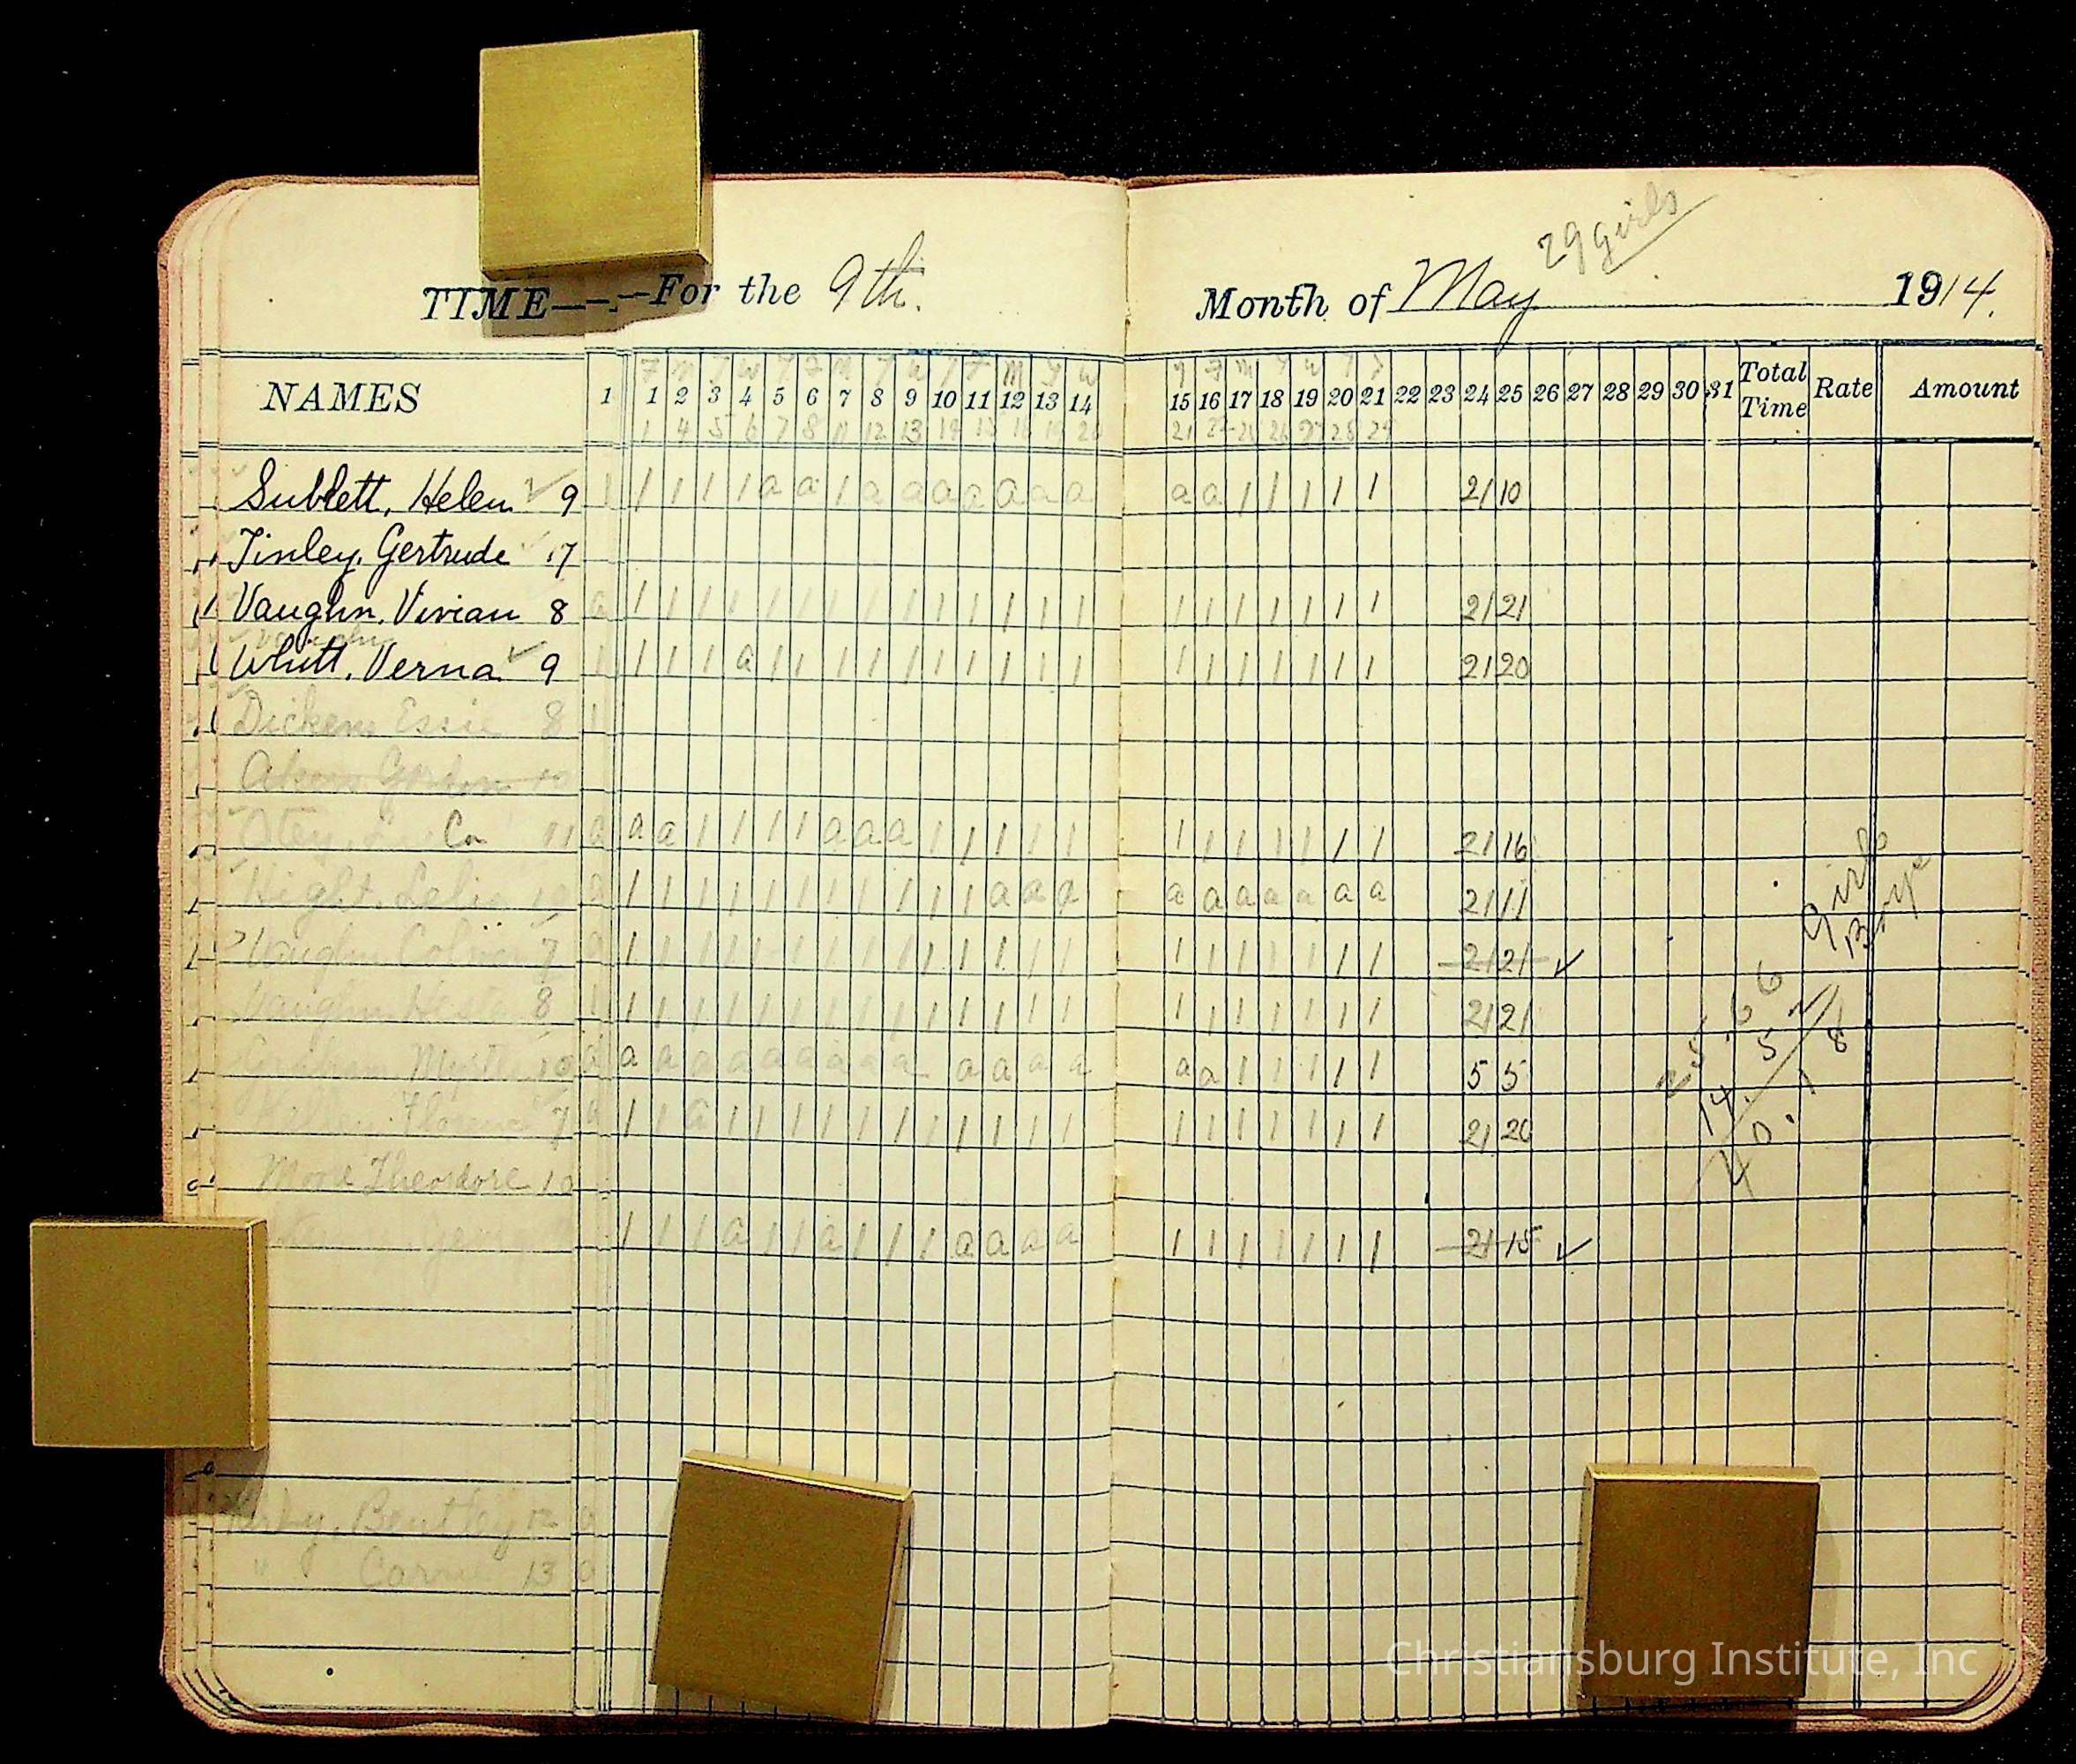 29 girls
TIME—For the 9th. Month of May 1914.
NAMES 1 1 2 3 4 5 6 7 8 9 10 11 12 13 14 15 16 17 18 19 20 21 22 23 24 25 26 27 28 29 30 31 Total Time Rate Amount
1 4 5 6 7 8 11 12 13 14 15 18 19 20 21 22 25 26 27 28 29
Sublett, Helen 9 1 1 1 1 1 a a 1 a a a a a a a a a 1 1 1 1 1 21 10
Tinley, Gertrude 17
Vaughn, Vivian 8 a 1 1 1 1 1 1 1 1 1 1 1 1 1 1 1 1 1 1 1 1 1 21 21
Whitt, Verna 9 1 1 1 1 a 1 1 1 1 1 1 1 1 1 1 1 1 1 1 1 1 1 21 20
Dickens Essie 8 1
Otey, Ca 11 a a a 1 1 1 1 a a a 1 1 1 1 1 1 1 1 1 1 1 1 21 16
Hight, Lelia a 1 1 1 1 1 1 1 1 1 1 1 a a a a a a a a a a 21 11
Vaughn 7 1 1 1 1 1 1 1 1 1 1 1 1 1 1 1 1 1 1 1 1 1 21 21 ✓
Vaughn 8 1 1 1 1 1 1 1 1 1 1 1 1 1 1 1 1 1 1 1 1 1 1 21 21
Myrtle 10 a a a a a a a a a a a a a a a a 1 1 1 1 1 5 5
Florence 7 1 1 a 1 1 1 1 1 1 1 1 1 1 1 1 1 1 1 1 1 1 21 20
Moore Theodore 10
1 1 1 a 1 1 a 1 1 1 a a a a 1 1 1 1 1 1 1 21 15 ✓
Girls
Boys
25.66
14.52
40.18
Bentley 12 a
" 13 a
Christiansburg Institute, Inc